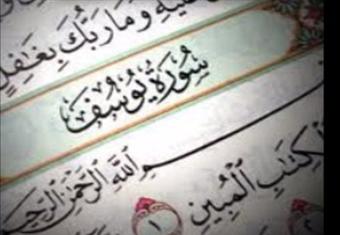 وَمَا رَبُّكَ بِغَٰفِلٍ
سُورَةُ يُوسُفَ
بِسْمِ اللَّهِ الرَّحْمَٰنِ الرَّحِيمِ
الْكِتَٰبِ الْمُبِينِ ١